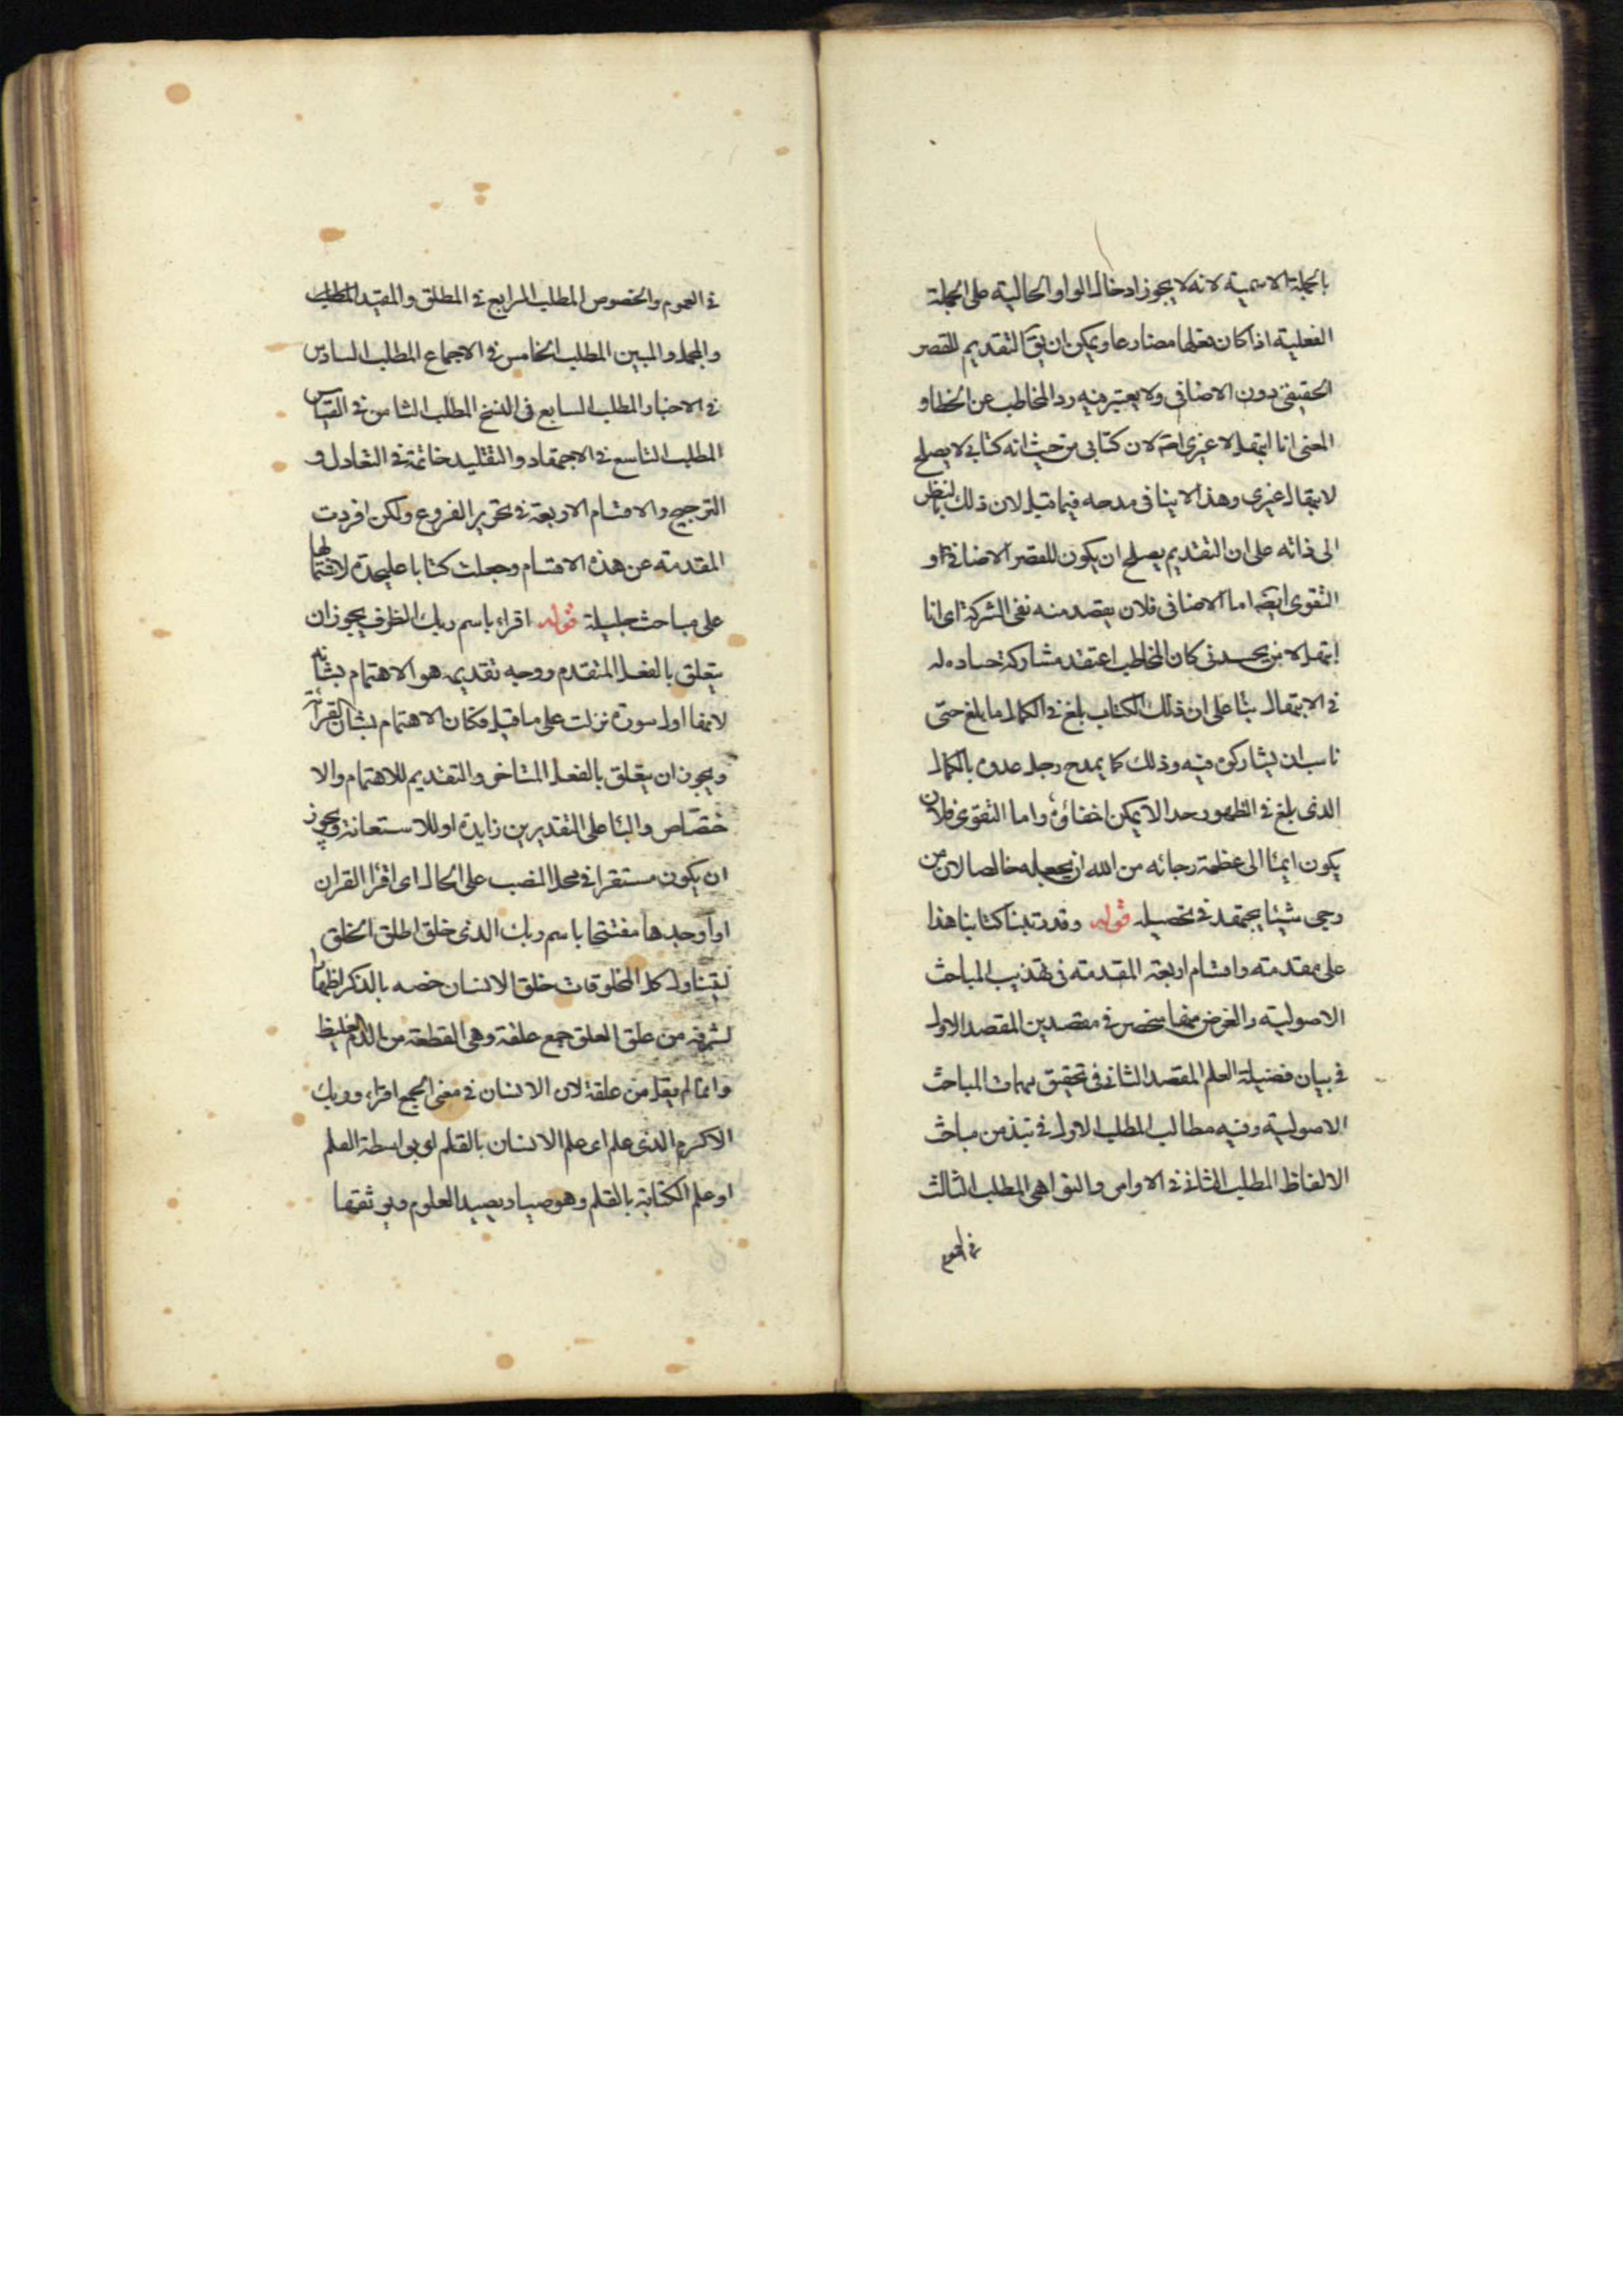 بالجملة الاسمية لانه لا يجوز ادخال الواو الحالية على الجملة
الفعلية اذا كان فعلها مضارعا ويمكن ان يق التقديم للقصر
الحقيقى دون الاضافى ولا يعتبر فيه رد المخاطب عن الخطا و
المعنى انا ابتهل لا غيرى لان كتابى من حيث انه كتابى لا يصلح
لابتهال غيرى وهذا لا ينافى مدحه فيما قبل لان ذلك بالنظر
الى ذاته على ان التقديم يصلح ان يكون للقصر الاضافى او
التقوى ايضا اما الاضافى فلان يقصد منه نفى الشركة اى انا
ابتهل لا من يحسدنى كان المخاطب اعتقد مشاركة حساده له
فى الابتهال بنا على ان ذلك الكتاب بلغ فى الكمال ما بلغ حتى
ناسب ان يشاركوه فيه وذلك كما يمدح رجل عدوه بالكمال
الذى بلغ فى الظهور حدا لا يمكن اخفاؤه واما التقوى فلان
يكون ايمئا الى عظمة رجائه من الله ان يجعله خالصا لان من
رجى شيئا يجتهد فى تحصيله قوله وقد رتبنا كتابنا هذا
على مقدمته واقسام اربعة المقدمته فى تهذيب المباحث
الاصولية والغرض منها منحصر فى مقصدين المقصد الاول
فى بيان فضيلة العلم المقصد الثانى فى تحقيق مهمات المباحث
الاصولية وفيه مطالب المطلب الاول فى نبذ من مباحث
الالفاظ المطلب الثانى فى الاوامر والنواهى المطلب الثالث
فى العموم
فى العموم والخصوص المطلب الرابع فى المطلق والمقيد
والمجمل والمبين المطلب الخامس فى الاجماع المطلب السادس
فى الاخبار المطلب السابع فى النسخ المطلب الثامن فى القياس
المطلب التاسع فى الاجتهاد والتقليد خاتمة فى التعادل و
الترجيح والاقسام الاربعة فى تحرير الفروع ولكن افردت
المقدمته عن هذه الاقسام وجعلت كتابا عليحدة لاشتمالها
على مباحث جليلة قوله اقراء باسم ربك الظرف يجوز ان
يتعلق بالفعل المتقدم ووجه تقديمه هو الاهتمام بشانه
لانها اول سورة نزلت على ما قيل فكان الاهتمام بشان القرائة
ويجوز ان يتعلق بالفعل المتاخر والتقديم للاهتمام والا
ختصاص والبئا على التقديرين زايدة او للاستعانة ويجوز
ان يكون مستقرا فى محل النصب على الحال اى اقرأ القران
او اوحيدها مفتتحا باسم ربك الذى خلق اطلق الخلق
ليتناول كل المخلوقات خلق الانسان خصه بالذكر اظهارا
لشرفه من علق العلق جمع علقة وهى القطعة من الدم الغليظ
وانما لم يقل من علقة لان الانسان فى معنى الجمع اقراء وربك
الاكرم الذى علم اى علم الانسان بالقلم اى بواسطة القلم
او علم الكتابة بالقلم وهو صياد يصيد العلوم ويوثقها